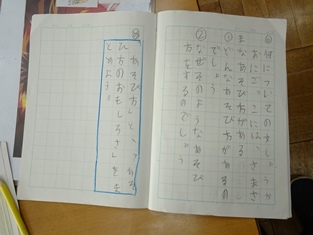 何についての
おにごっこには、さまざ
まなあそび方がある
① どんなあそび方があるの
でしょう
② なぜそのようなあそび
方をするのでしょう
「あそび方」と「あそ
び方のおもしろさ」をま
とめよう。